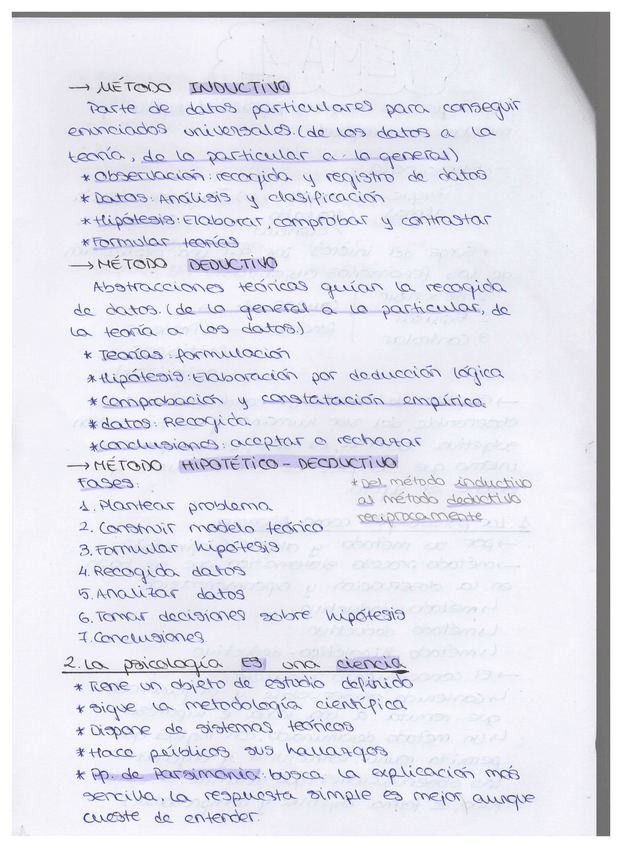 → MÉTODO INDUCTIVO
Parte de datos particulares para conseguir
enunciados universales. (de los datos a la
teoría, de lo particular a lo general)
* Observación: recogida y registro de datos
* Datos: Análisis y clasificación
* Hipótesis: Elaborar, comprobar y contrastar
* Formular teorías
→ MÉTODO DEDUCTIVO
Abstracciones teóricas guían la recogida
de datos. (de lo general a lo particular, de
la teoría a los datos.)
* Teorías: formulación
* Hipótesis: Elaboración por deducción lógica
* Comprobación y constatación empírica
* datos: Recogida
* Conclusiones: aceptar o rechazar
→ MÉTODO HIPOTÉTICO - DEDUCTIVO
Fases:
* Del método inductivo
al método deductivo
recíprocamente
1. Plantear problema
2. Construir modelo teórico
3. Formular hipótesis
4. Recogida datos
5. Analizar datos
6. Tomar decisiones sobre hipótesis
7. Conclusiones
2. La psicología ES una ciencia
* Tiene un objeto de estudio definido
* Sigue la metodología científica
* Dispone de sistemas teóricos
* Hace públicos sus hallazgos
* Pp. de Parsimonia: busca la explicación más
sencilla, la respuesta simple es mejor aunque
cueste de entender.